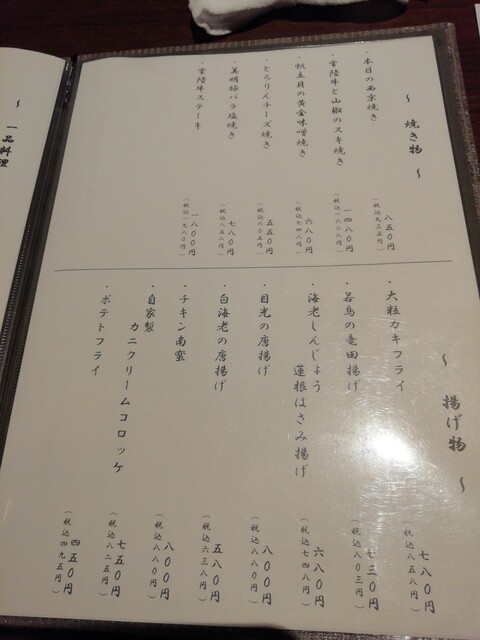 ～ 焼き物 ～
・本日の西京焼き
八五〇円
（税込九三五円）
・常陸牛と山椒のスキ焼き
一四八〇円
（税込一六二八円）
・帆立貝の黄金味噌焼き
六八〇円
（税込七四八円）
・とろりんチーズ焼き
五五〇円
（税込六〇五円）
・美明豚バラ塩焼き
七八〇円
（税込八五八円）
・常陸牛ステーキ
一八〇〇円
（税込一九八〇円）
～ 揚げ物 ～
・大粒カキフライ
七八〇円
（税込八五八円）
・若鳥の竜田揚げ
七三〇円
（税込八〇三円）
・海老しんじょう
蓮根はさみ揚げ
六八〇円
（税込七四八円）
・目光の唐揚げ
八〇〇円
（税込八八〇円）
・白海老の唐揚げ
五八〇円
（税込六三八円）
・チキン南蛮
八〇〇円
（税込八八〇円）
・自家製
カニクリームコロッケ
七五〇円
（税込八二五円）
・ポテトフライ
四五〇円
（税込四九五円）
～ 一品料理